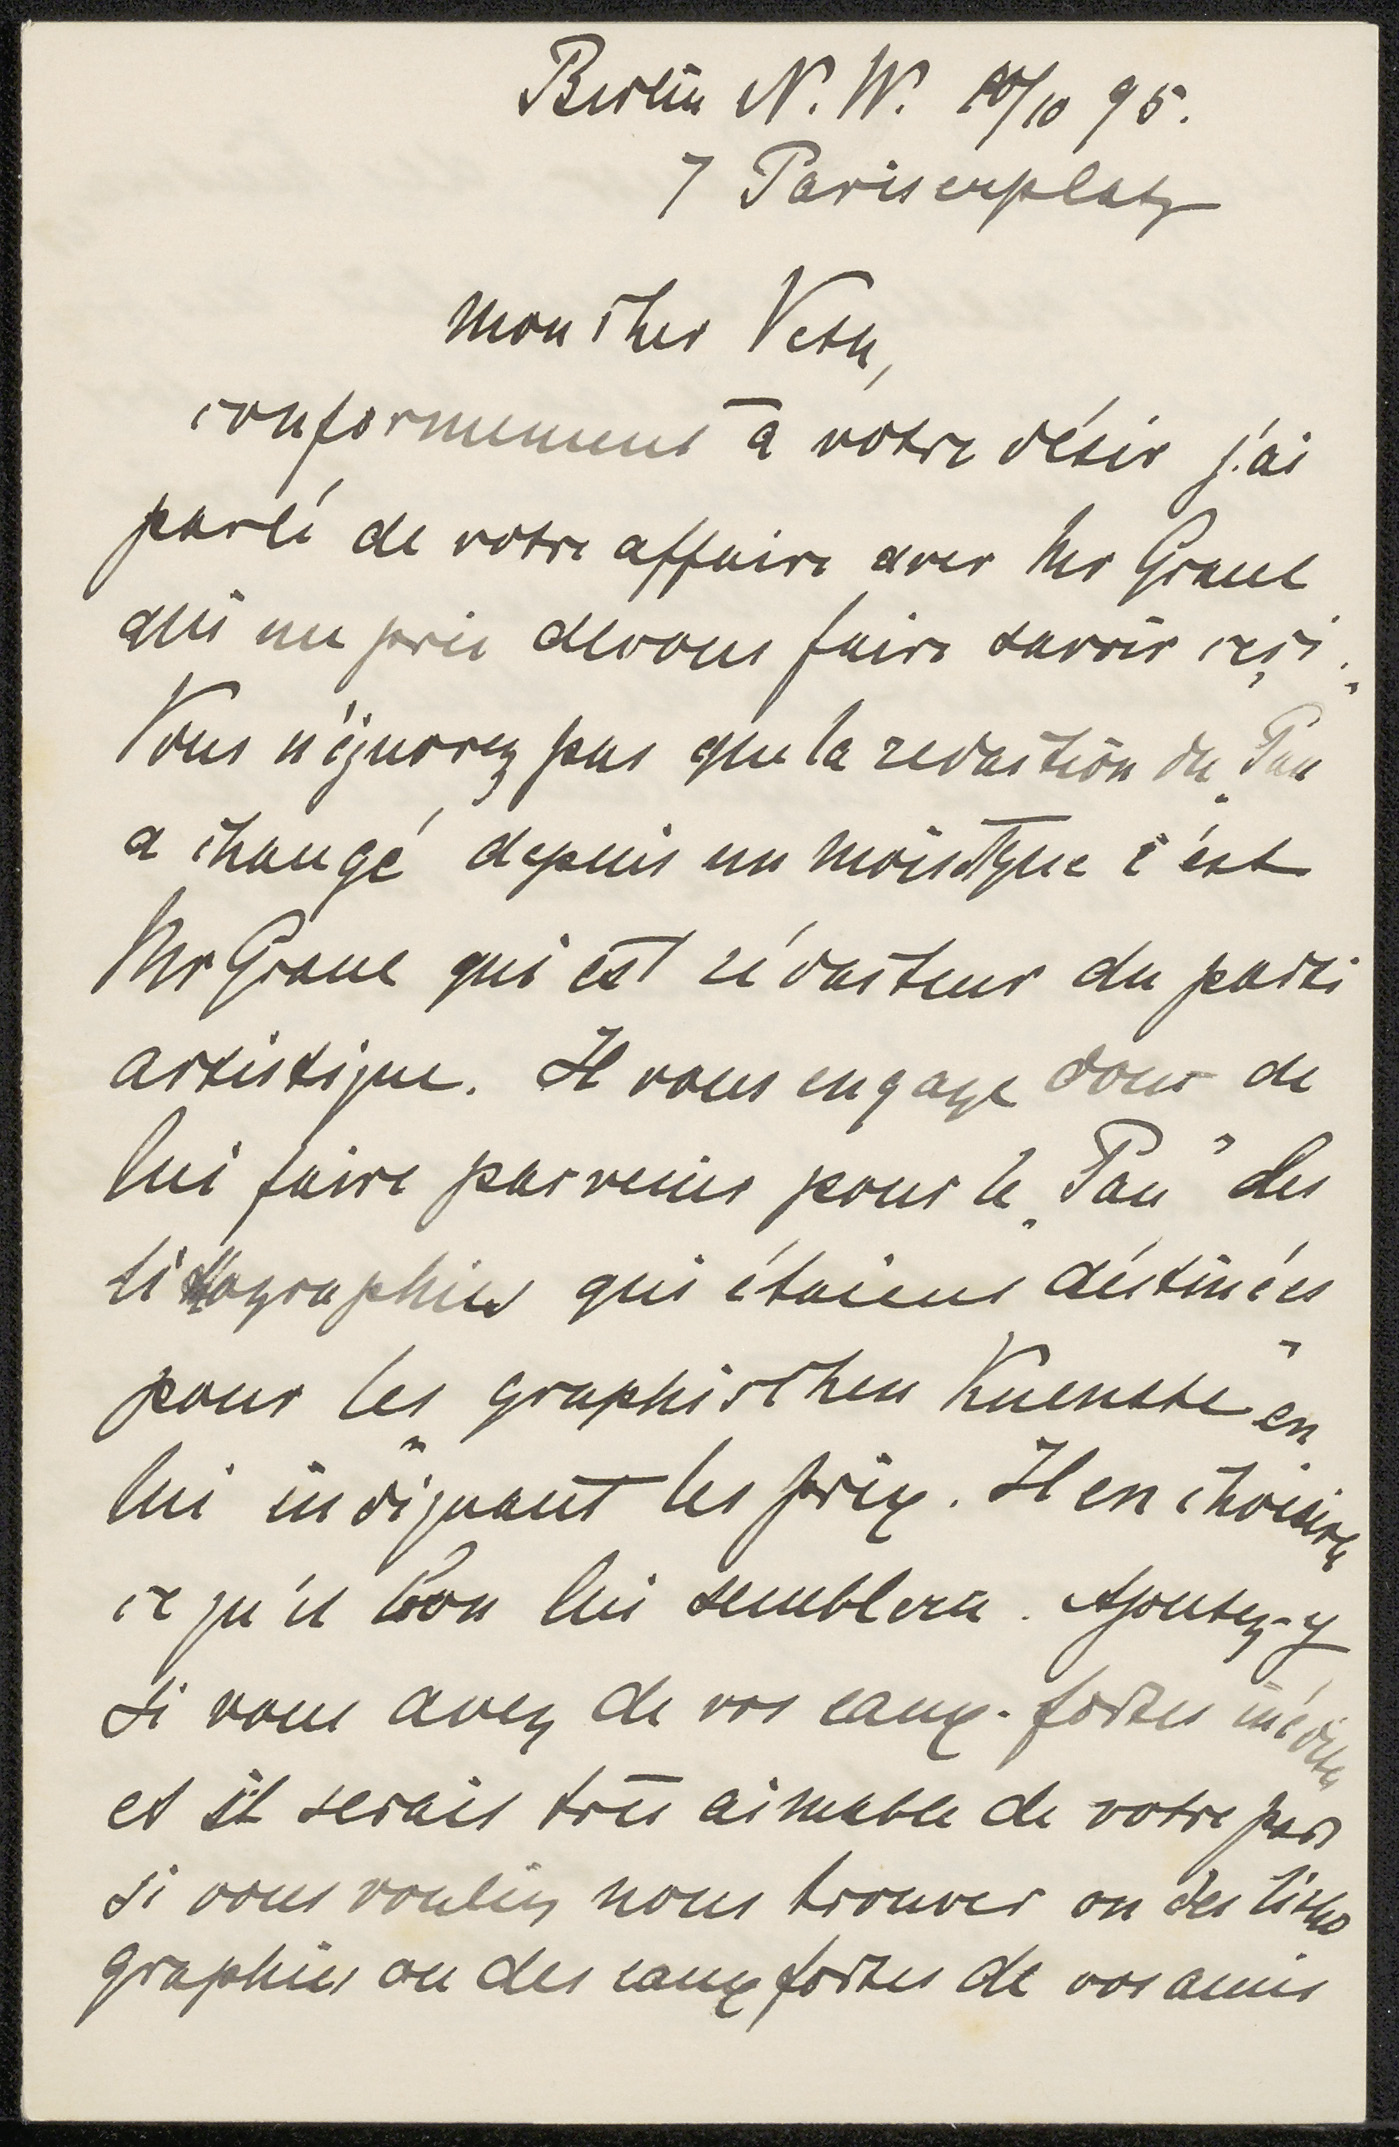 Berlin N.W. 10/10 95.
7 Pariserplatz
Mon cher Veth,
conformement à votre désir j'ai
parlé de votre affaire avec Mr Graul
qui me prie de vous faire savoir ceçi:
Vous n'ignorez pas que la redaction du „Pan
a changé depuis un mois et que c'est
Mr Graul qui est rédacteur du parti
artistique. Il vous engage donc de
lui faire parvenir pour le „Pan" des
litographies qui étaient déstinées
pour les „graphischen Kuenste" en
lui indiquant les prix. Il en choisira
ce qu'il bon lui semblera. Ajoutez-y
si vous avez de vos eaux-fortes inédites
et il serait très aimable de votre part
si vous vouliez nous trouver ou des litho
graphies ou des eaux fortes de vos amis